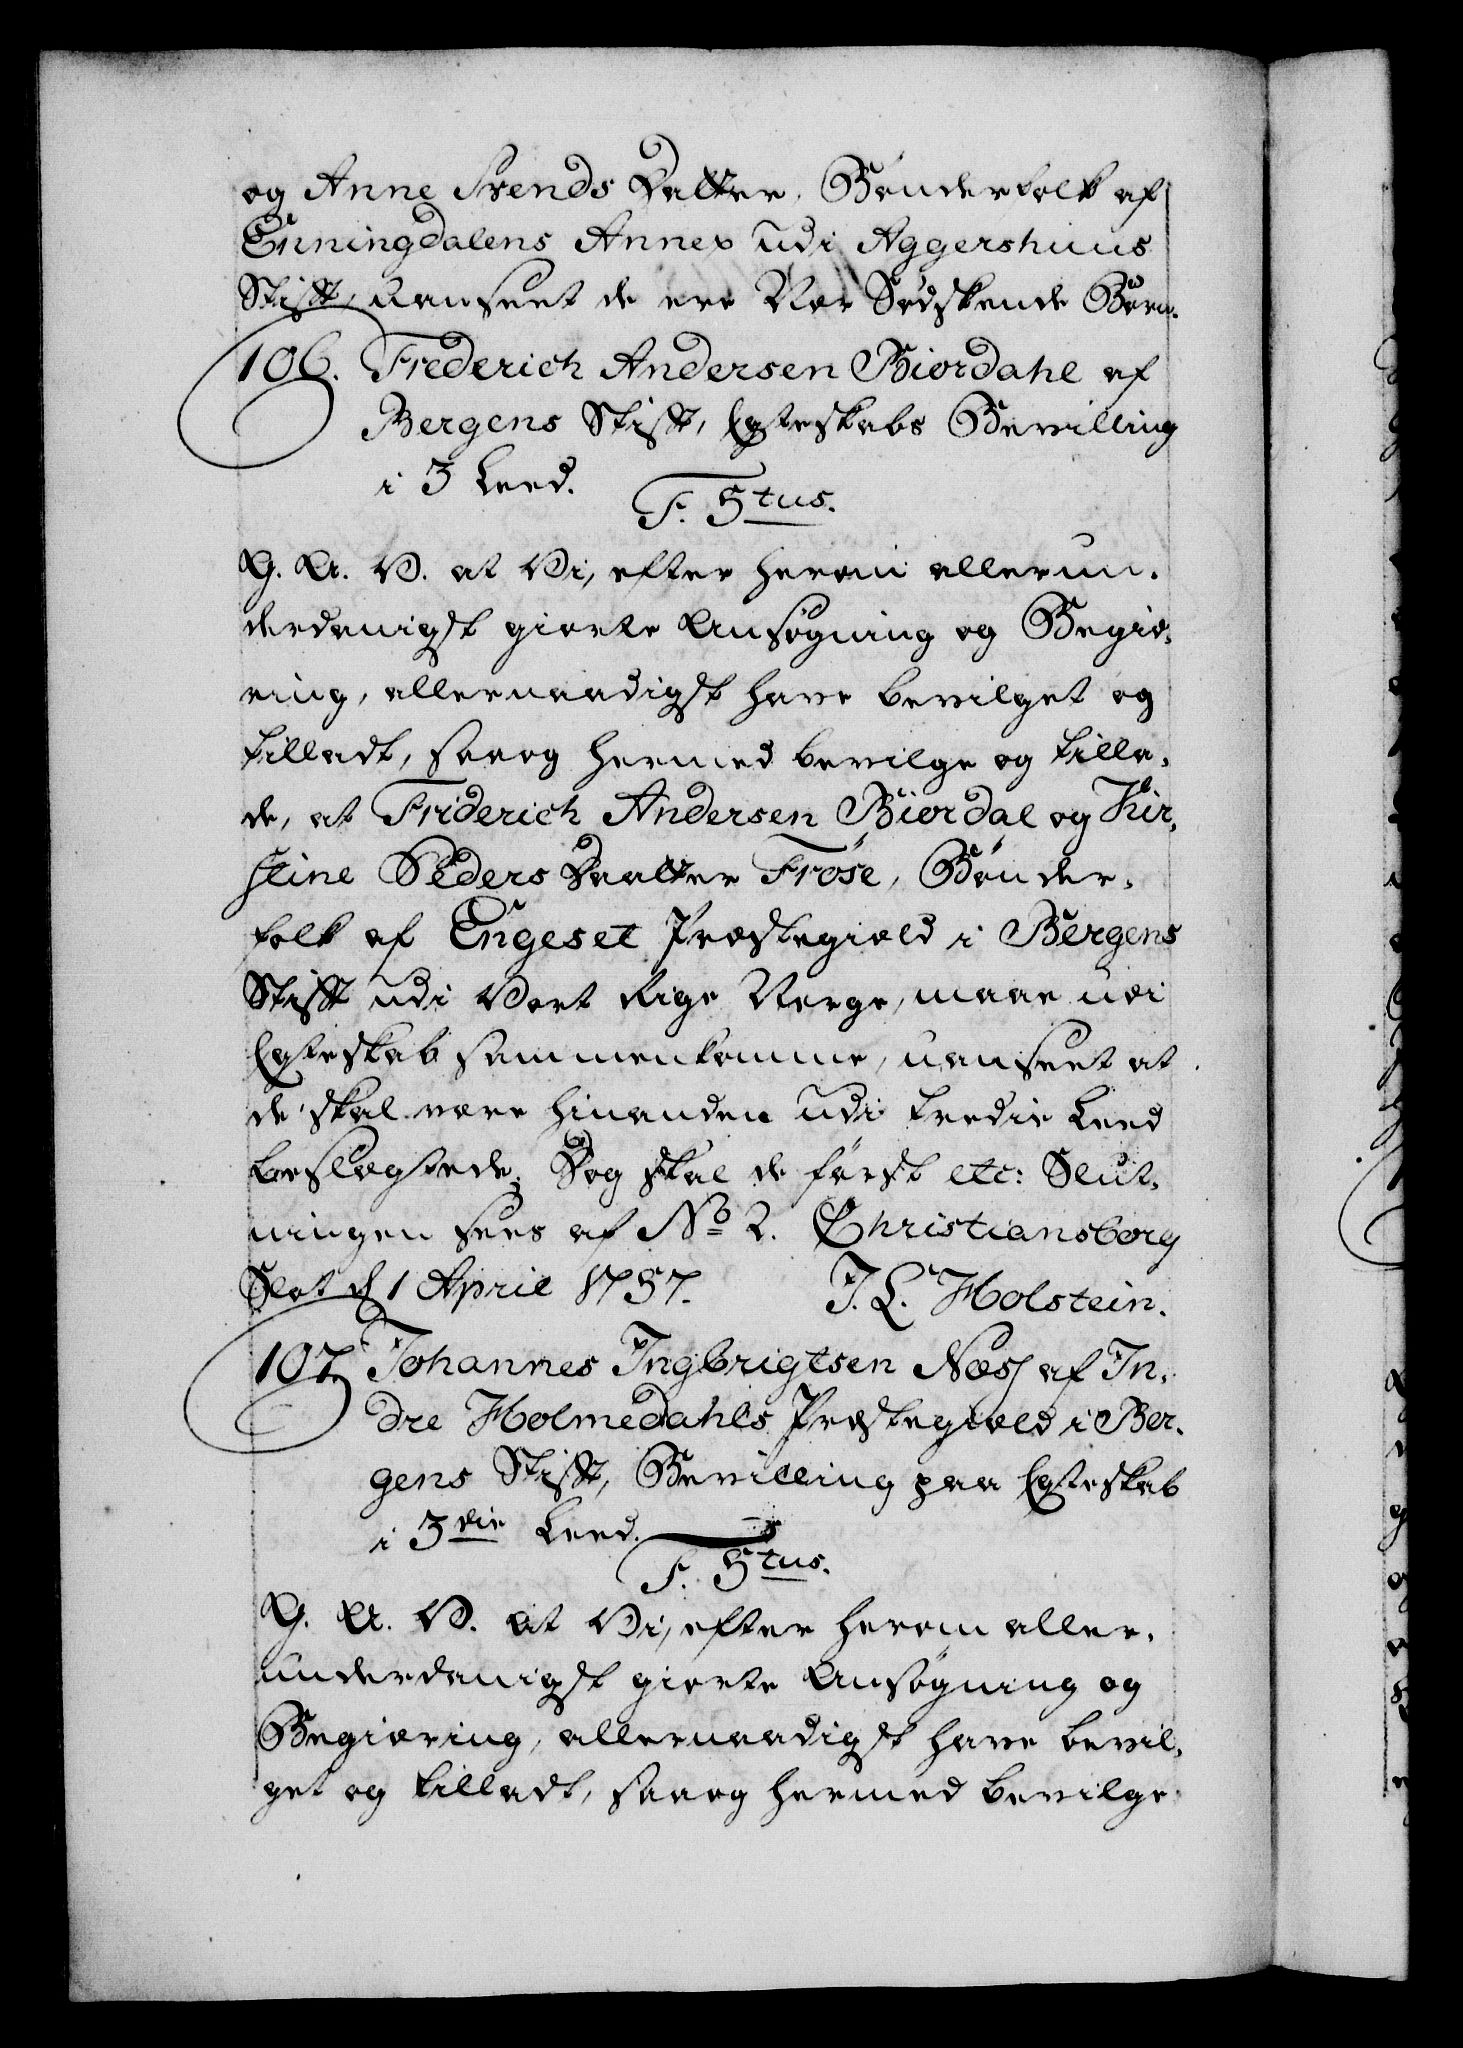 og Anne Svends Datter, Bønderfolk af
Enningdalens Annex udi Aggershuus
Stift, uanseet de ere Nær Sødskende Børn.
106. Frederich Andersen Biordahl af
Bergens Stift, Egteskabs Bevilling
i 3 Leed.
F. 5tus.
G. A. V. at Vi, efter herom allerun-
derdanigst giorte Ansøgning og Begiæ-
ring, allernaadigst have bevilget og
tilladt, saa og hermed bevilge og tilla-
de, at Friderich Andersen Biordal og Kir-
stine Peders Daatter Frøse, Bønder-
folk af Engeset Præstegield i Bergens
Stift udi Vort Rige Norge, maae udi
Egteskab sammenkomme, uanseet at
de skal være hinanden udi tredie Leed
beslægtede; Dog skal de først etc: Slut-
ningen sees af No 2. Christiansborg
Slot d 1 April 1757. J. L. Holstein.
107. Johannes Ingbrigtsen Næss af In-
dre Holmedahls Præstegield i Ber-
gens Stift, Bevilling paa Egteskab
i 3die Leed.
F. 5tus.
G. A. V. at Vi, efter herom aller-
underdanigst giorte Ansøgning og
Begiæring, allernaadigst have bevil-
get og tilladt, saa og hermed bevilge